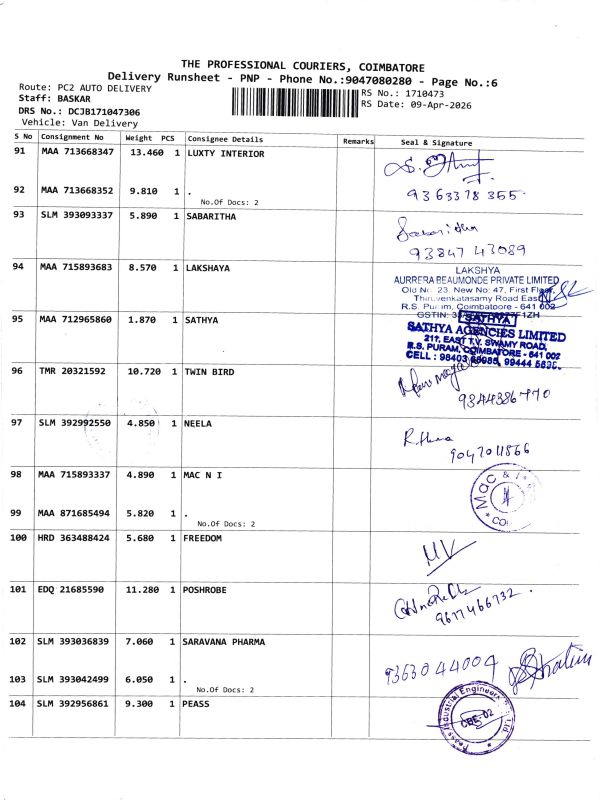 THE PROFESSIONAL COURIERS, COIMBATORE
Delivery Runsheet - PNP - Phone No.:9047080280 - Page No.:6
Route: PC2 AUTO DELIVERY
Staff: BASKAR
DRS No.: DCJB171047306
Vehicle: Van Delivery
RS No.: 1710473
RS Date: 09-Apr-2026
S No Consignment No Weight PCS Consignee Details Remarks Seal & Signature
91 MAA 713668347 13.460 1 LUXTY INTERIOR
92 MAA 713668352 9.810 1 .
No.Of Docs: 2
9363378355
93 SLM 393093337 5.890 1 SABARITHA
Sabaritha
93847 43089
94 MAA 715893683 8.570 1 LAKSHAYA
LAKSHYA
AURRERA BEAUMONDE PRIVATE LIMITED
Old No: 23, New No: 47, First Floor,
Thiruvenkatasamy Road East
R.S. Puram, Coimbatoore - 641 002
GSTIN: 33
F1ZH
95 MAA 712965860 1.870 1 SATHYA
SATHYA
SATHYA AGENCIES LIMITED
217, EAST T.V. SWAMY ROAD,
R.S. PURAM, COIMBATORE - 641 002
CELL : 98403 99444
96 TMR 20321592 10.720 1 TWIN BIRD
9344386770
97 SLM 392992550 4.850 1 NEELA
9047011866
98 MAA 715893337 4.890 1 MAC N I
Mac &
99 MAA 871685494 5.820 1 .
No.Of Docs: 2
100 HRD 363488424 5.680 1 FREEDOM
101 EDQ 21685590 11.280 1 POSHROBE
9677466732
102 SLM 393036839 7.060 1 SARAVANA PHARMA
9363044004
103 SLM 393042499 6.050 1 .
No.Of Docs: 2
104 SLM 392956861 9.300 1 PEASS
Peass Industrial Engineers Ltd.
CBE-02